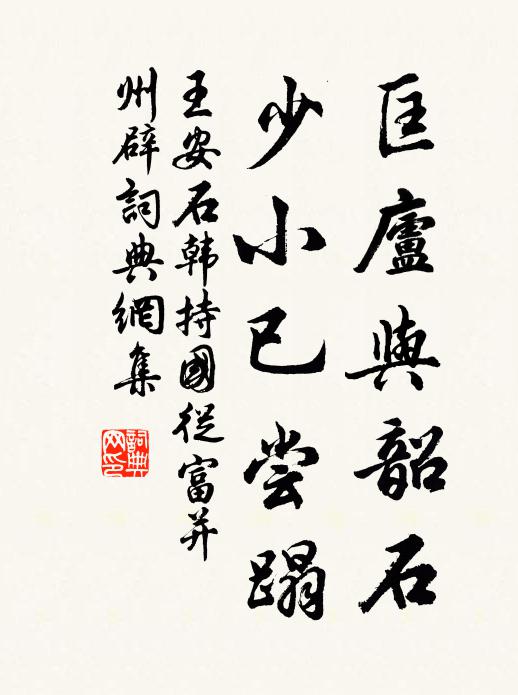 匡廬與韶石
少小已尝蹋
王安石韩持國従富并
州辟詞典網集
詞典网印